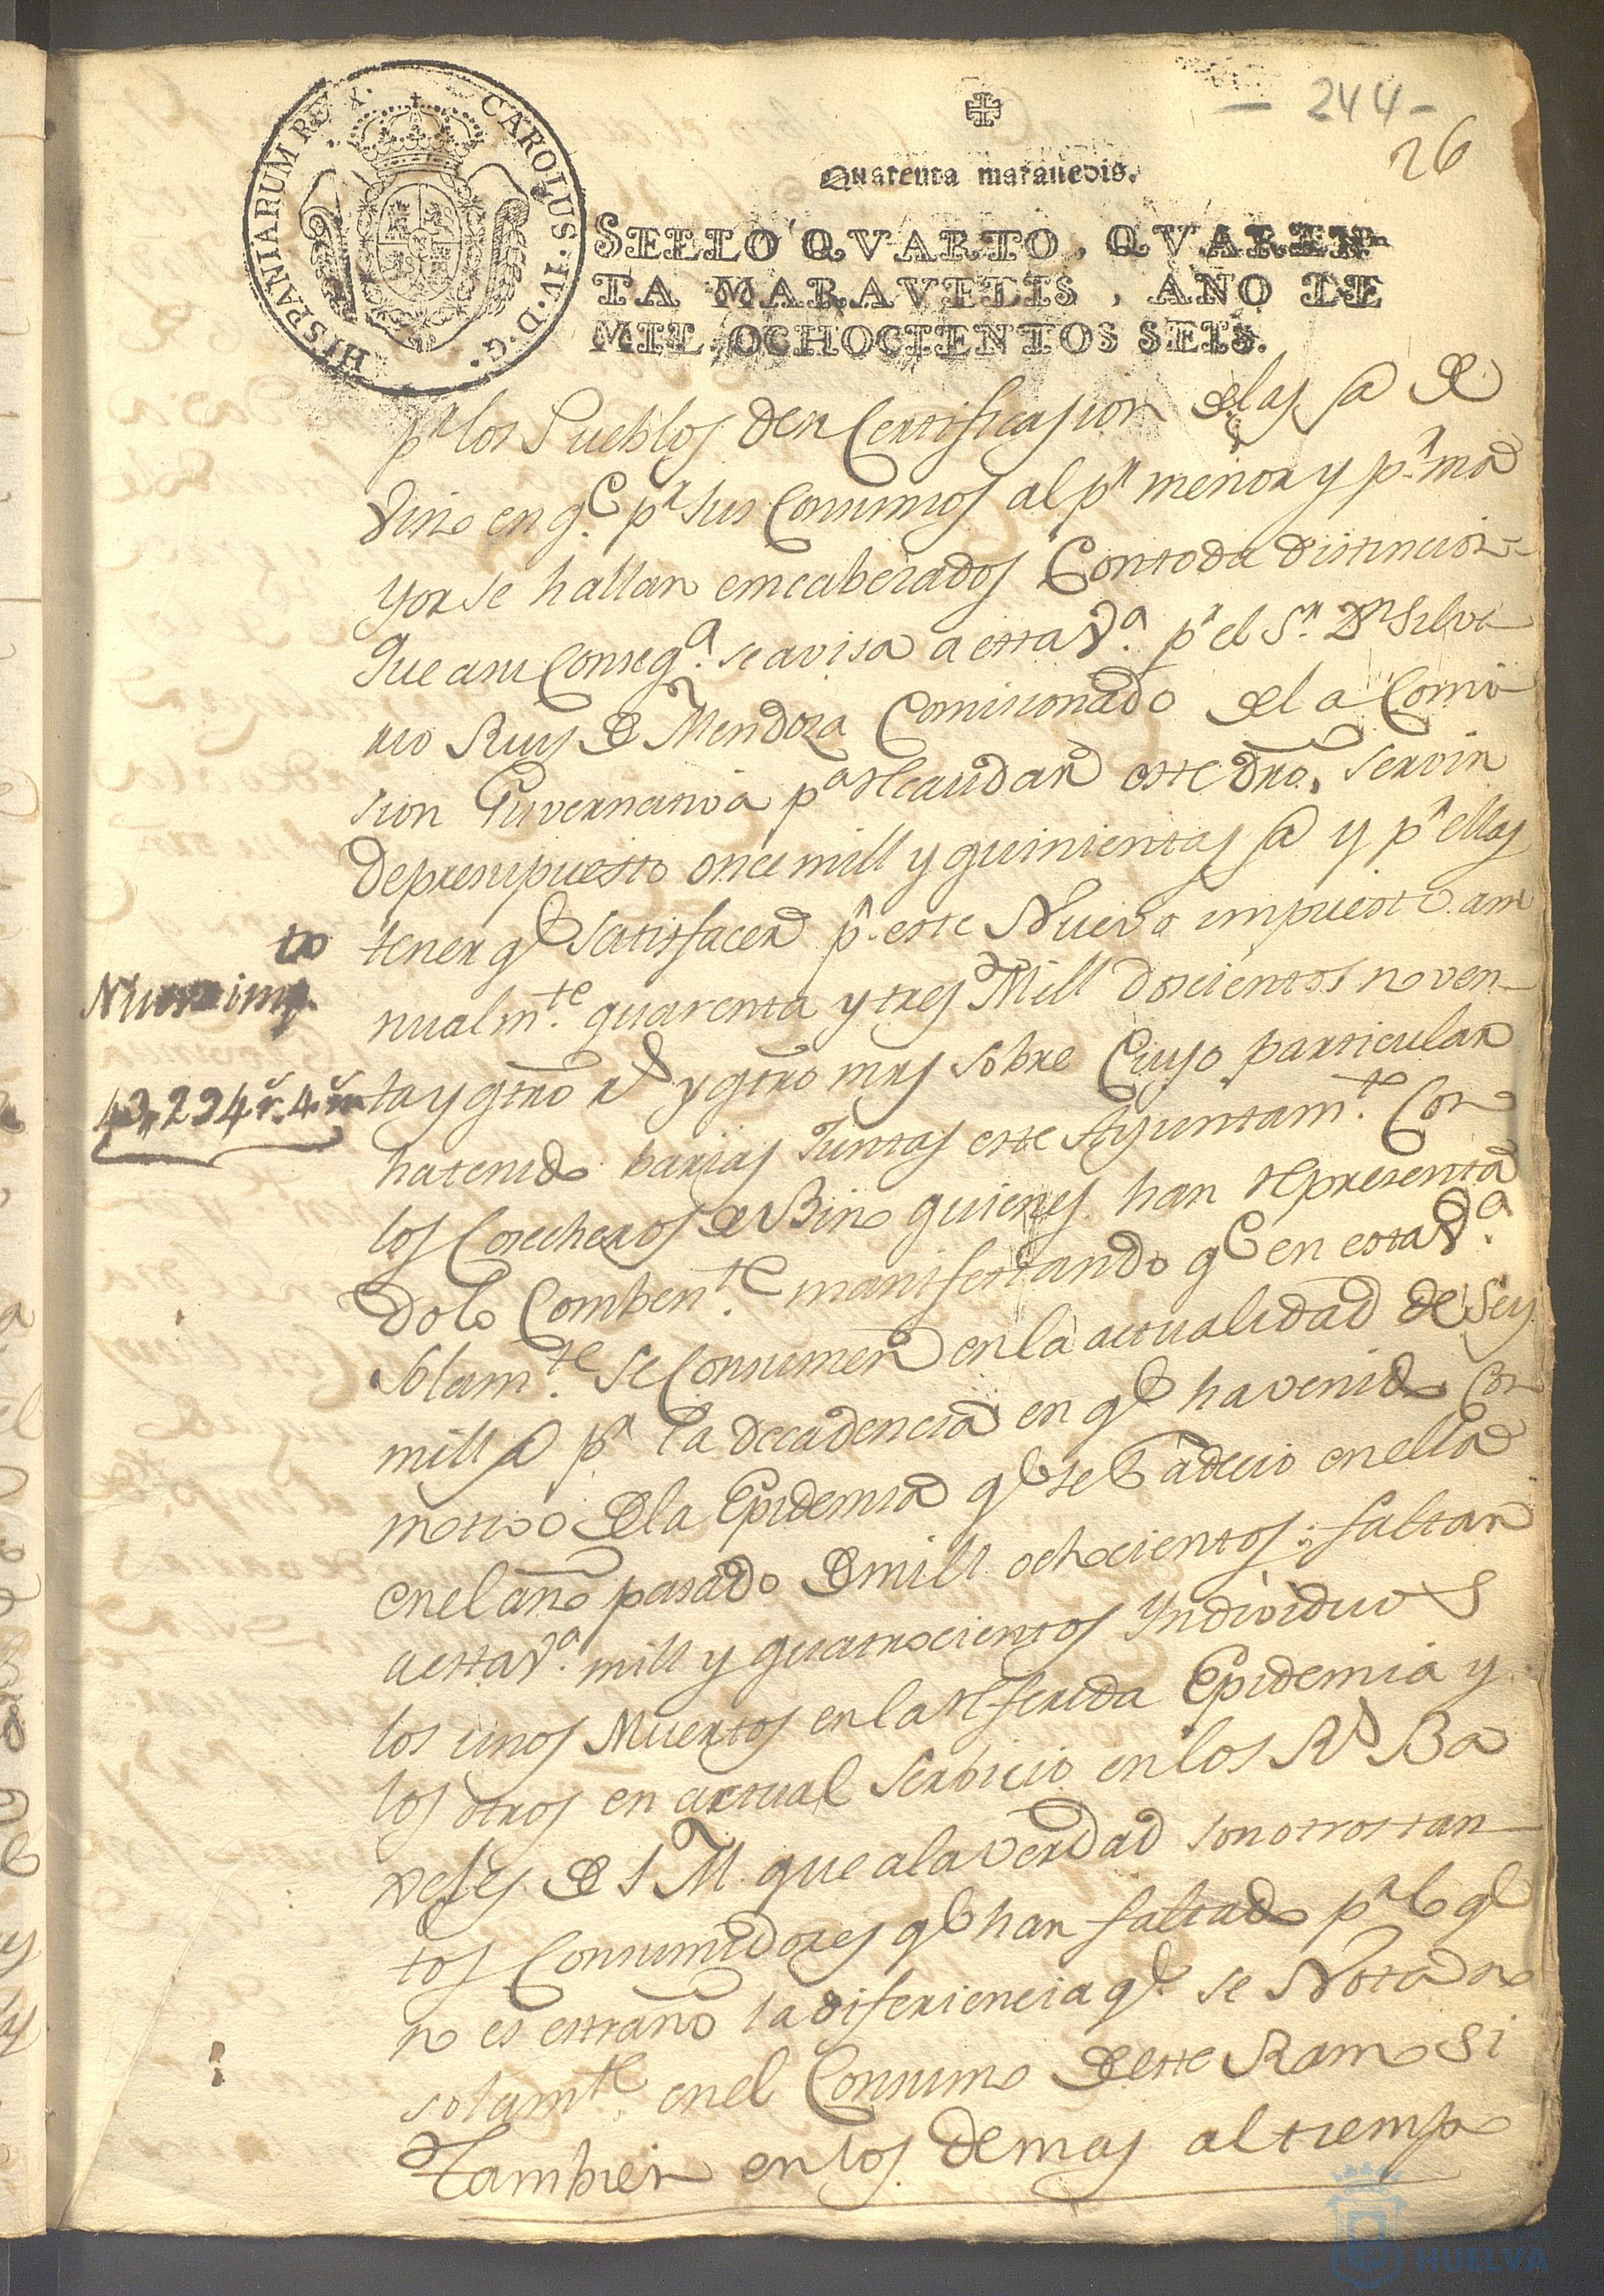 - 244 -
26
HISPANIARUM REX. CAROLUS·IV·D·G·
Quarenta maravedis.
SELLO QVARTO, QVAREN-
TA MARAVEDIS, AÑO DE
MIL OCHOCIENTOS SEIS.
pr los Pueblos den Certificasion delas @ de
Vino en qe pr sus Consumos al pr menor y pr ma
yor se hallan emcabezados Con toda distincion
Que am Conseqa. se avisa a esta Va. pr el Sr. Dn Silve
rio Ruys de Mendoza Comisionado de la Comi
sion Guvernativa pa Recaudar este dro. servin
De presupuesto once mill y quinientas @ y pr ellas
tener qe satisfacer pr. este Nuevo impuesto an
nualmte. quarenta y tres Mill doscientos noven-
ta y qtro rs y qtro mrs sobre Cuyo particular
ha tenido barias Juntas este Ayuntamte. Con
los Cosecheros de Bino quienes han representa
Dolo Combente. manifestando qe en esta Va.
Solamte. se Consumen en la actualidad de Seis
mill @ pr la decadencia en qe ha venido Con
motivo de la Epidemia qe se Padecio en ella
en el año pasado de mill ochocientos; faltan
a esta Va. mill y quatrocientos Yndividuos
los unos Muertos en la Referida Epidemia y
los otros en actual Serbicio en los Rs Ba
xeles de S M. que a la verdad son otros tan-
tos Consumidores qe han faltado pr lo qe
no es estraño la diferiencia qe. se Nota no
solamte. en el Consumo de este Ramo si
Tambien en los demas al tiempo
to
Nuevo imp.
43,,294 rs. 4 ms
HUELVA